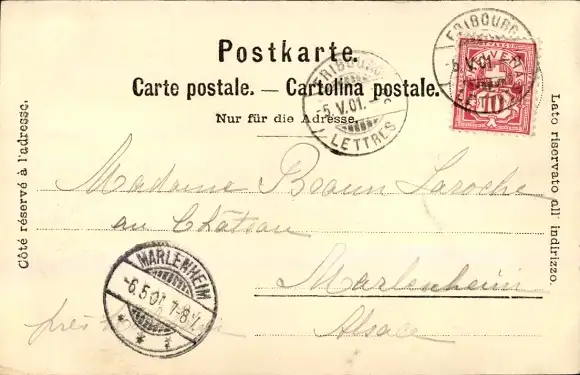 Postkarte.
Carte postale. — Cartolina postale.
Nur für die Adresse.
Côté réservé à l'adresse.
Lato riservato all' indirizzo.
FRIBOURG
-5.V.01.
LETTRES
FRIBOURG
-5.V.01.
HELVETIA
10
Madame Braun Laroche
au Château
Marlenheim
près
Alsace
MARLENHEIM
-6.5.01. 7-8½